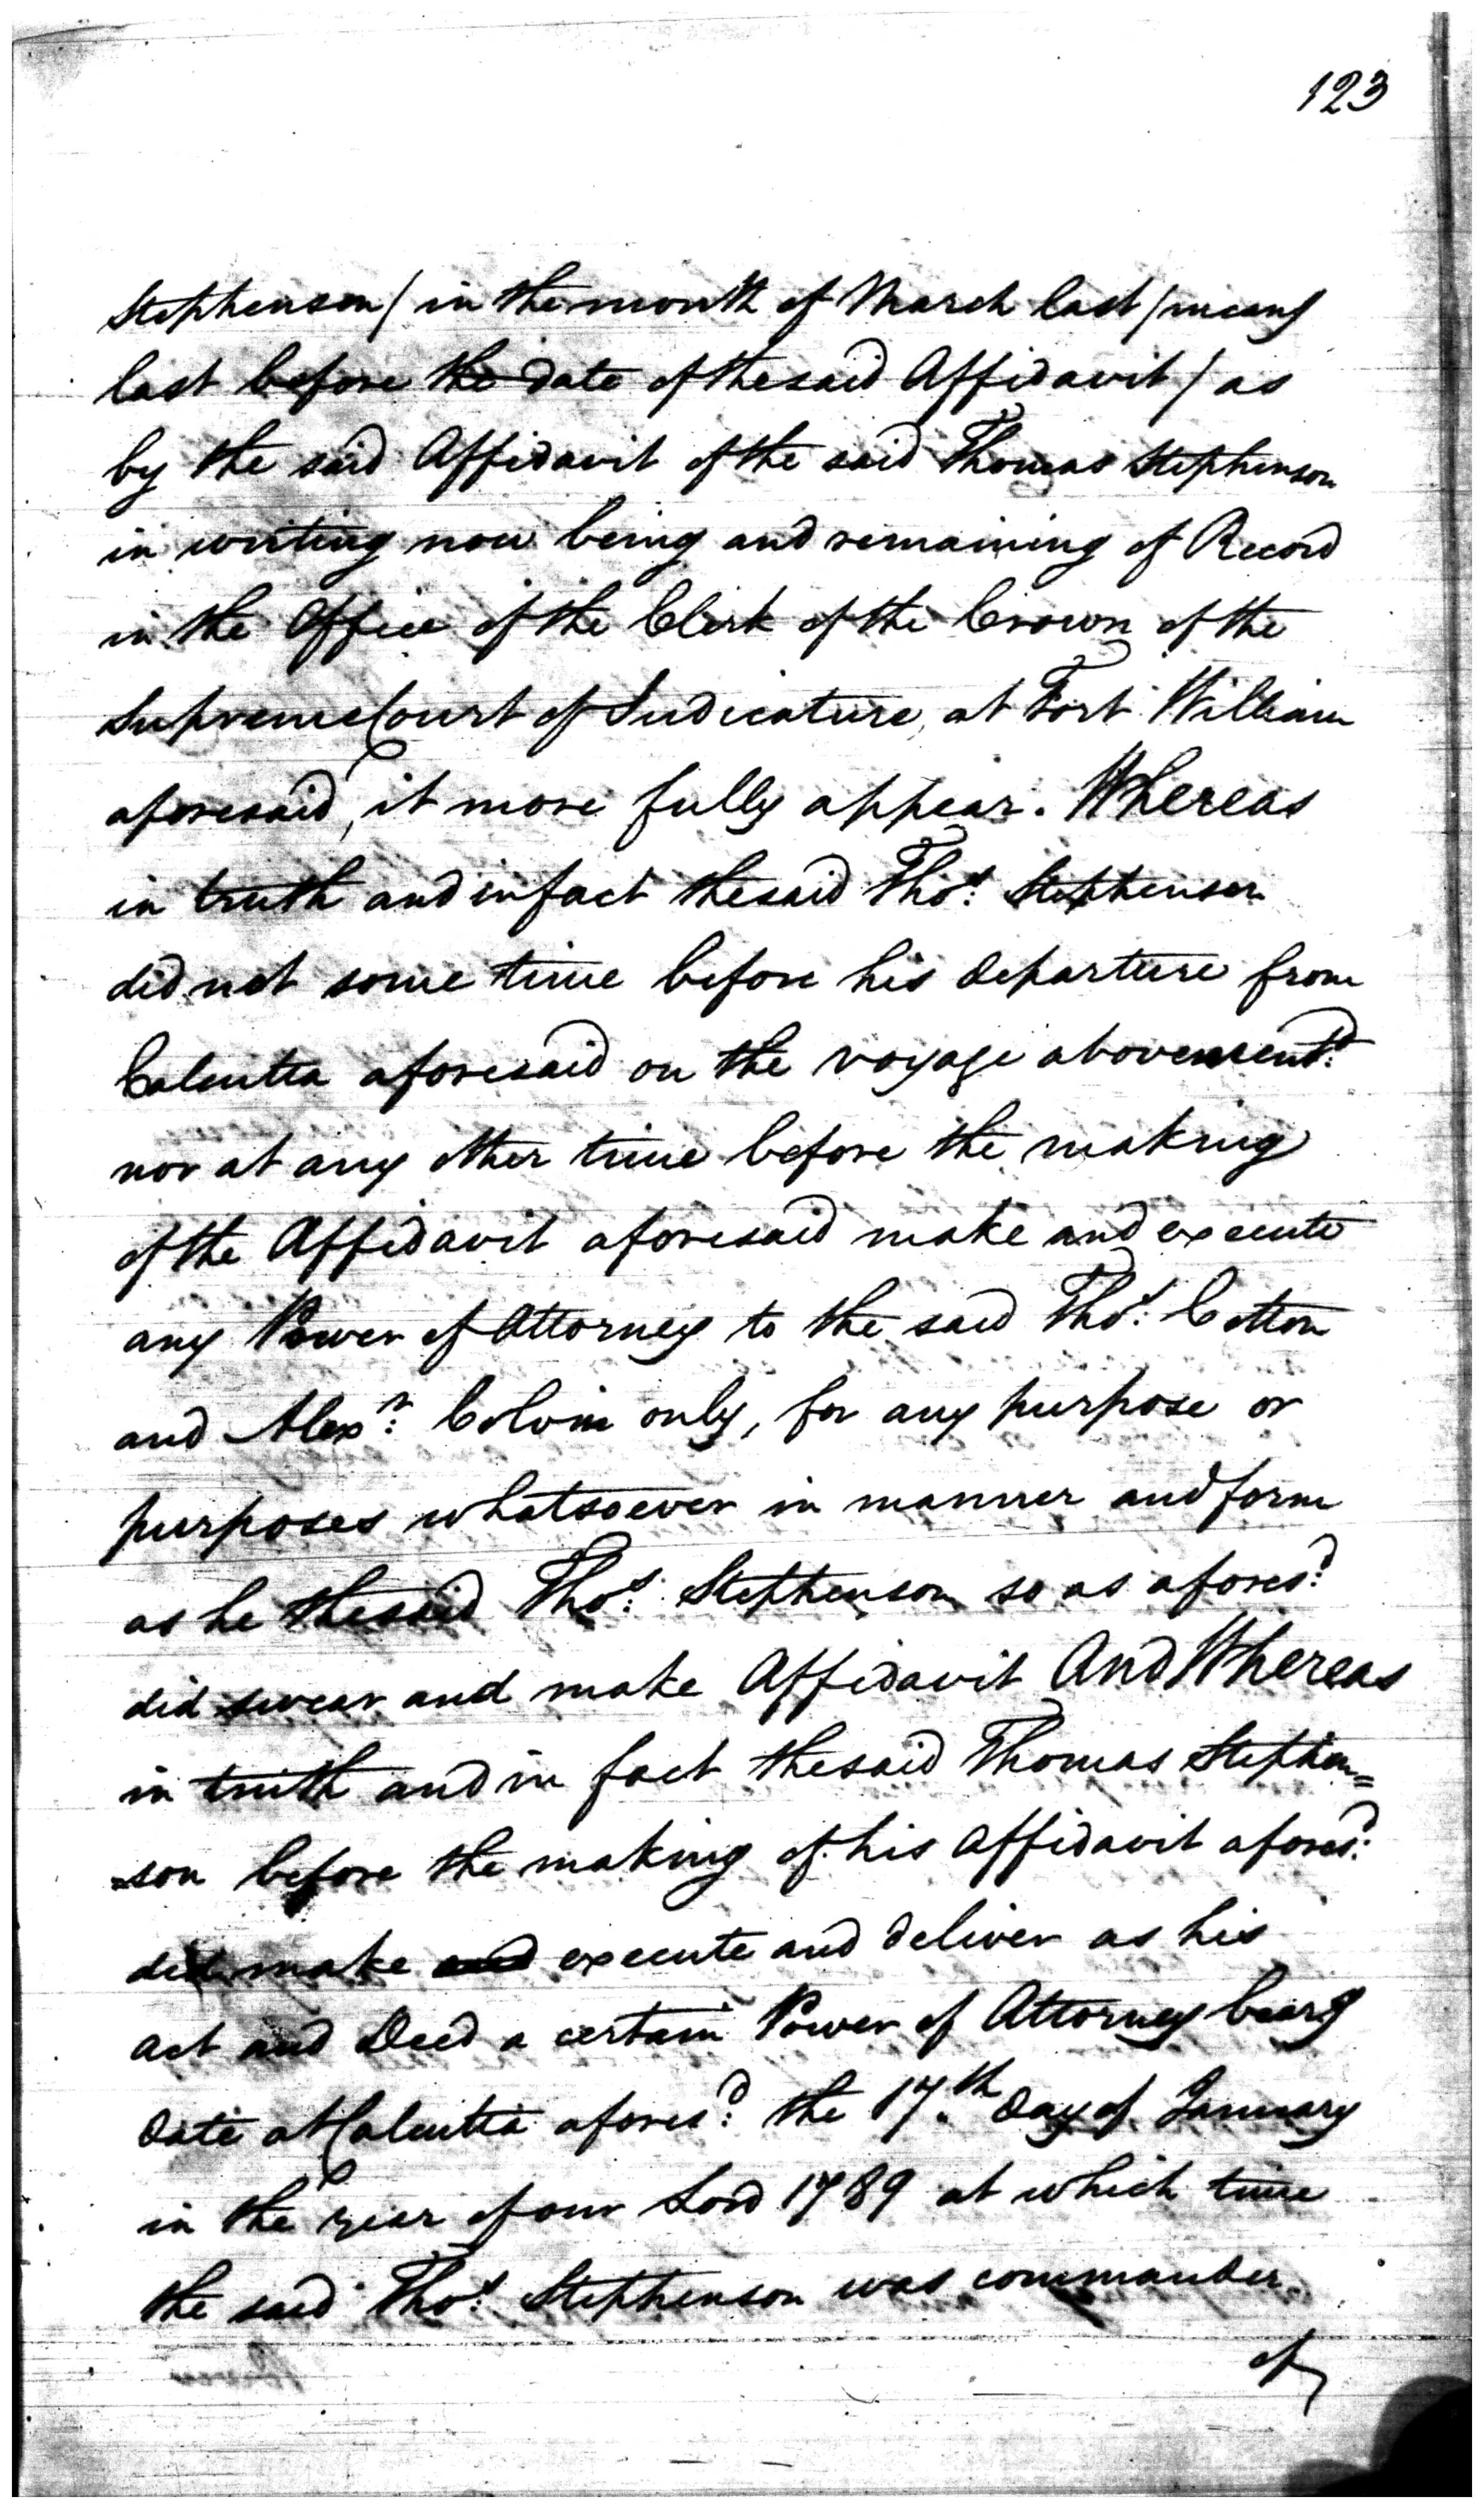 123
Stephenson / in the month of March last / meang
last before the date of the said Affidavit / as
by the said Affidavit of the said Thomas Stephenson
in writing now being and remaining of Record
in the Office of the Clerk of the Crown of the
Supreme Court of Judicature, at Fort William
aforesaid, it more fully appear. Whereas
in truth and in fact the said Thos. Stephenson
did not some time before his departure from
Calcutta aforesaid on the voyage abovementd.
nor at any other time before the making
of the Affidavit aforesaid make and execute
any Power of Attorney to the said Thos. Cotton
and Alexr. Colvin only, for any purpose or
purposes whatsoever in manner and form
as he the said Thos. Stephenson so as aforesd.
did swear and make Affidavit And Whereas
in truth and in fact the said Thomas Stephen=
=son before the making of his Affidavit aforesd.
did make and execute and deliver as his
act and Deed a certain Power of Attorney bearg
date at Calcutta aforesd. the 17th. day of January
in the year of our Lord 1789 at which time
the said Thos. Stephenson was commander
of